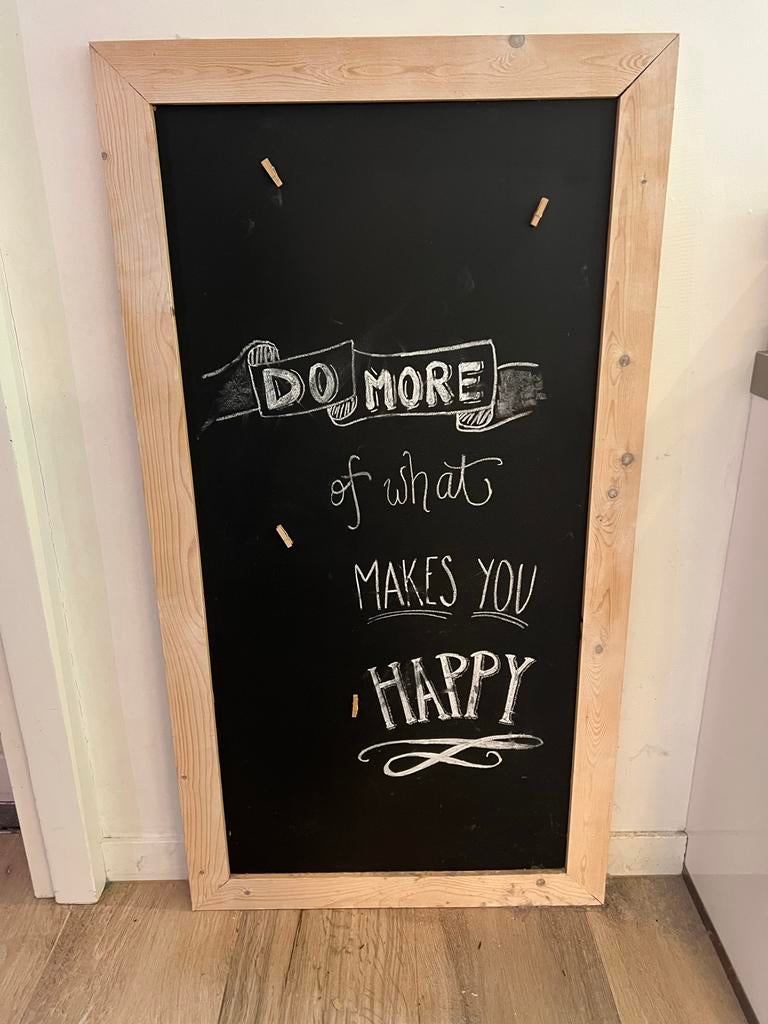 DO MORE
of what
MAKES YOU
HAPPY